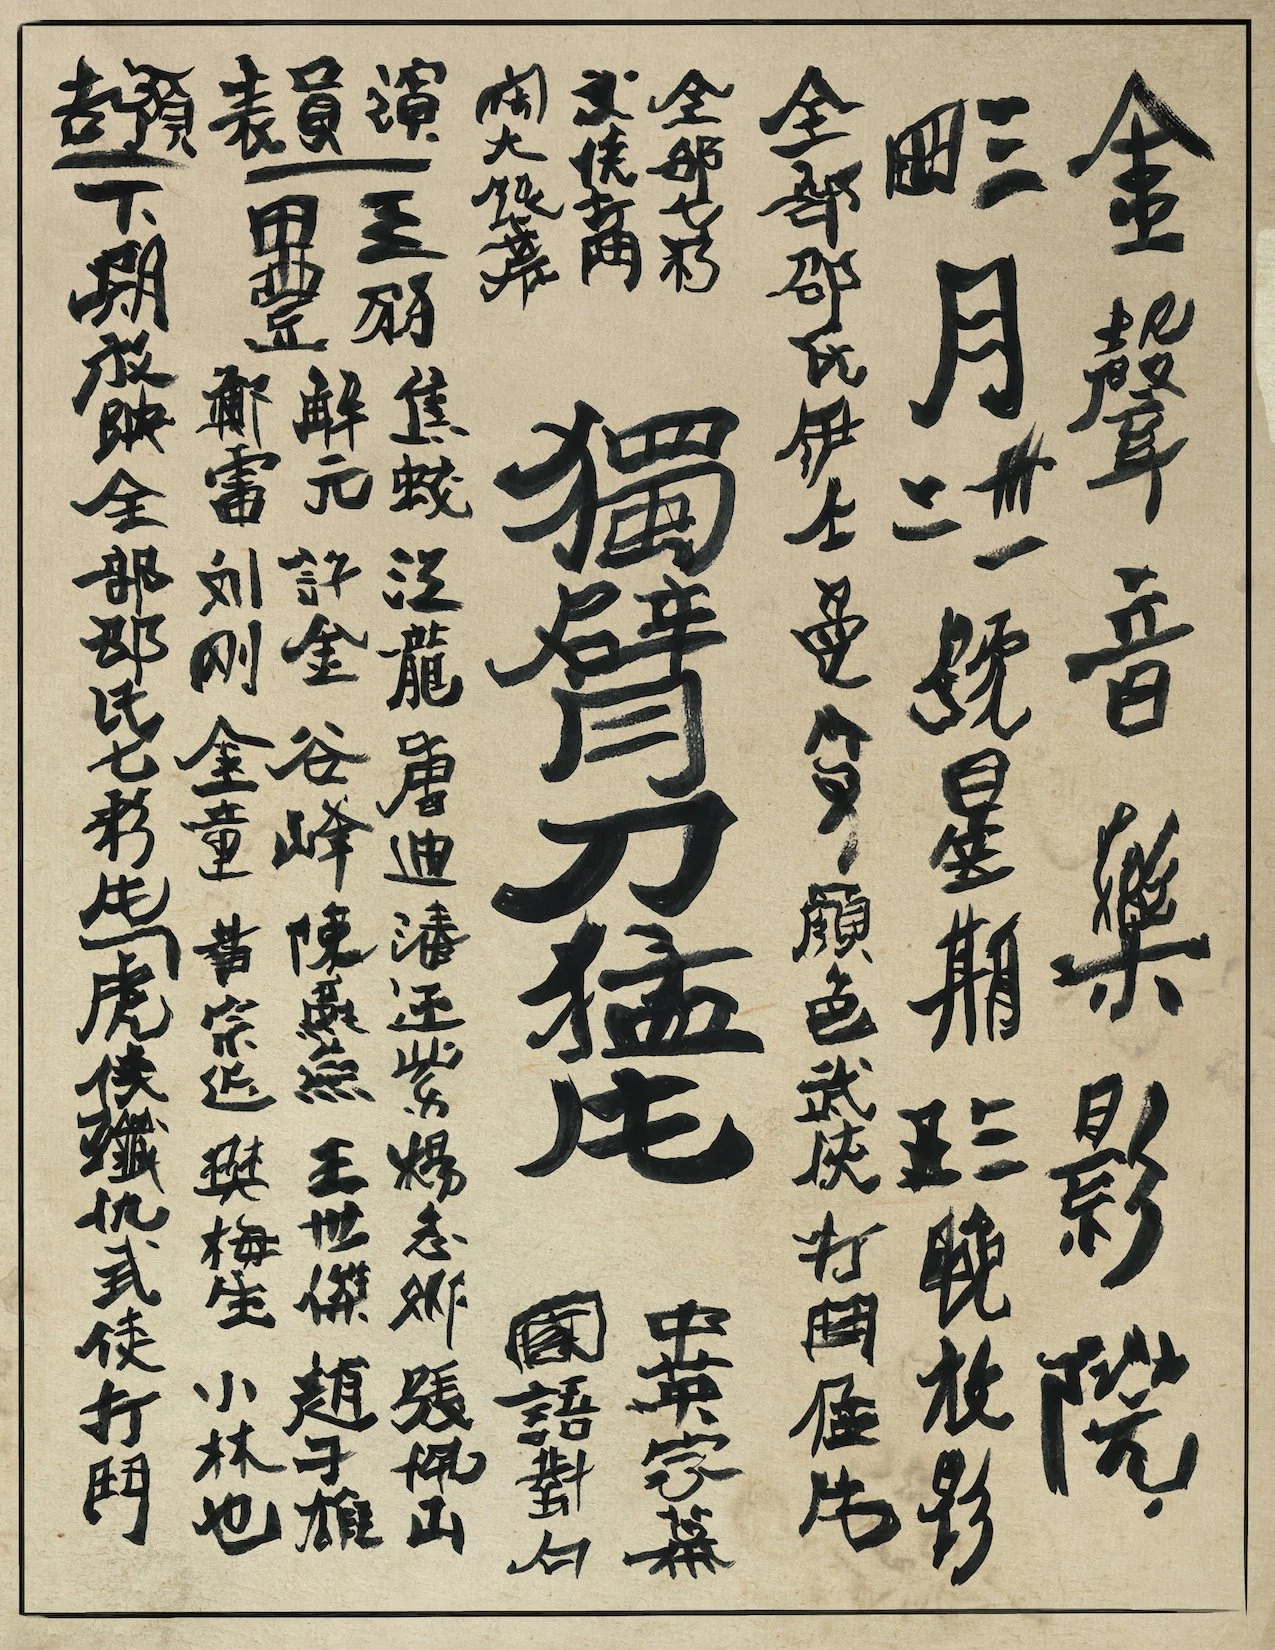 金聲音樂影院
三四月卅一二號星期二三晚放影
全部邵氏伊士曼
顏色武俠打鬥佳片
全部七彩
武俠打鬥
闊大銀幕
獨臂刀猛片
中英字幕
國語對白
演員表
王羽
焦姣
江龍
唐迪
潘迎紫
楊志卿
張佩山
田豐
解元
許金
谷峰
陳燕燕
王世傑
趙子雄
鄭雷
刘刚
金童
黃宗迅
樊梅生
小林也
預告
下期放映全部邵氏七彩片「虎俠殲仇武俠打鬥